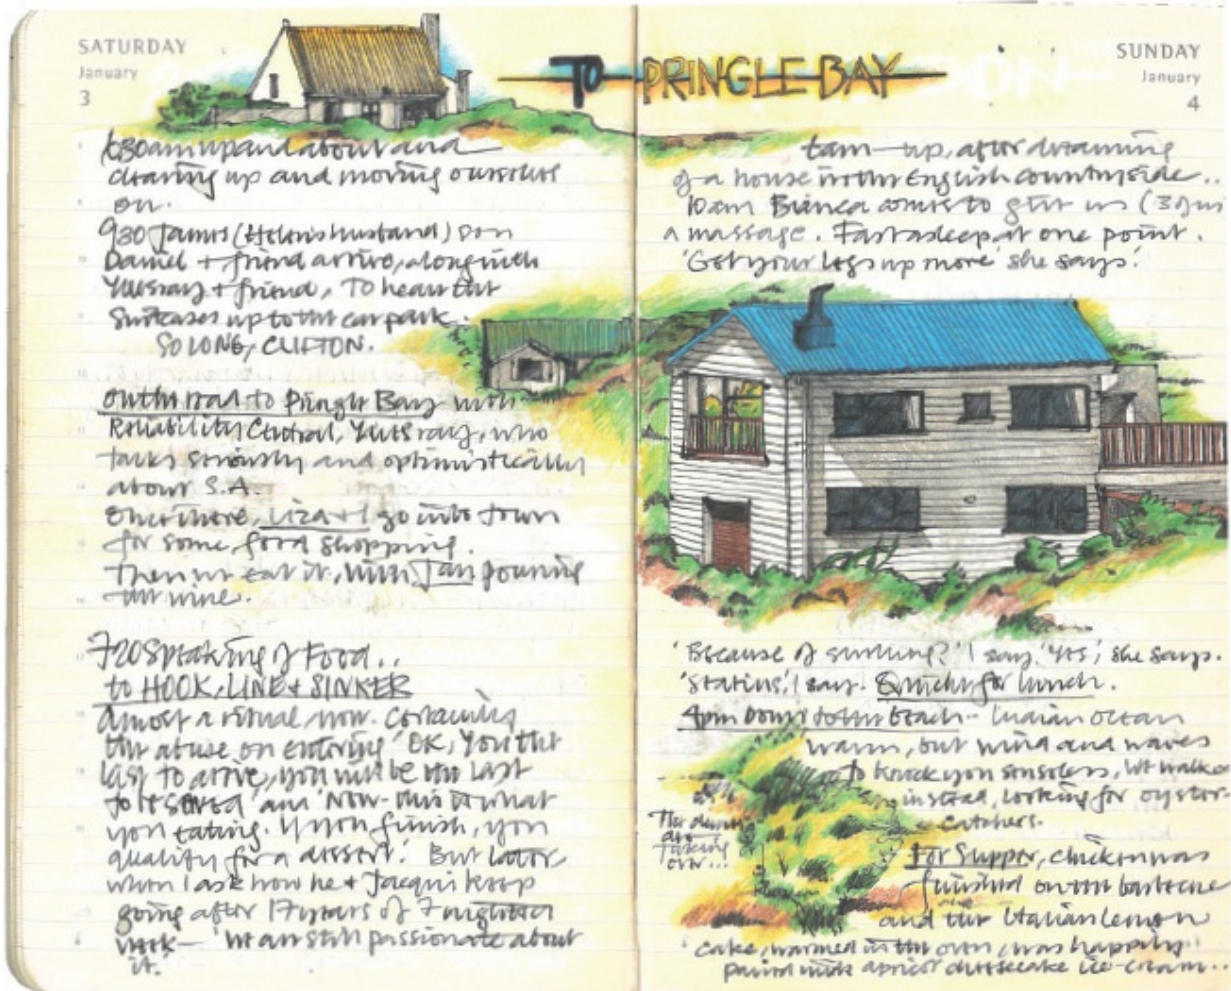 SATURDAY
January
3
TO PRINGLE BAY
SUNDAY
January
4
630am up and about and
clearing up and moving ourselves
on.
930 James (Helen's husband) son
Daniel + friend arrive, along with
+ friend, to
suitcases up to the car park.
SO LONG, CLIFTON.
On the road to Pringle Bay with
Reliability Central, who
talks seriously and optimistically
about S.A.
Once there, Liza + I go into town
for some food shopping.
Then we eat it, with Jan pouring
the wine.
720 Speaking of Food..
to HOOK, LINE + SINKER
Almost a ritual now. Certainly
the abuse on entering 'OK, you the
last to arrive, you will be the last
to be served' and 'Now - this is what
you eating. If you finish, you
qualify for a dessert.' But later,
when I ask how he + Jacqui keep
going after 17 years of 7 nights a
week - 'We are still passionate about
it.'
6am - up, after dreaming
of a house in the English countryside..
10am Bianca comes to give us (3 of us)
a massage. Fast asleep at one point.
'Get your legs up more' she says.
'Because of smoking?' I say. 'Yes', she says.
'Statins', I say. Quiche for lunch.
4pm Down to the beach - Indian Ocean
warm, but wind and waves
to knock you senseless. We walk
instead, looking for oyster-
catchers.
The dunes
are
taking
over...
For Supper, chicken was
finished on the barbecue
and the Italian lemon
cake, warmed in the oven, was happily
paired with apricot cheesecake ice-cream..